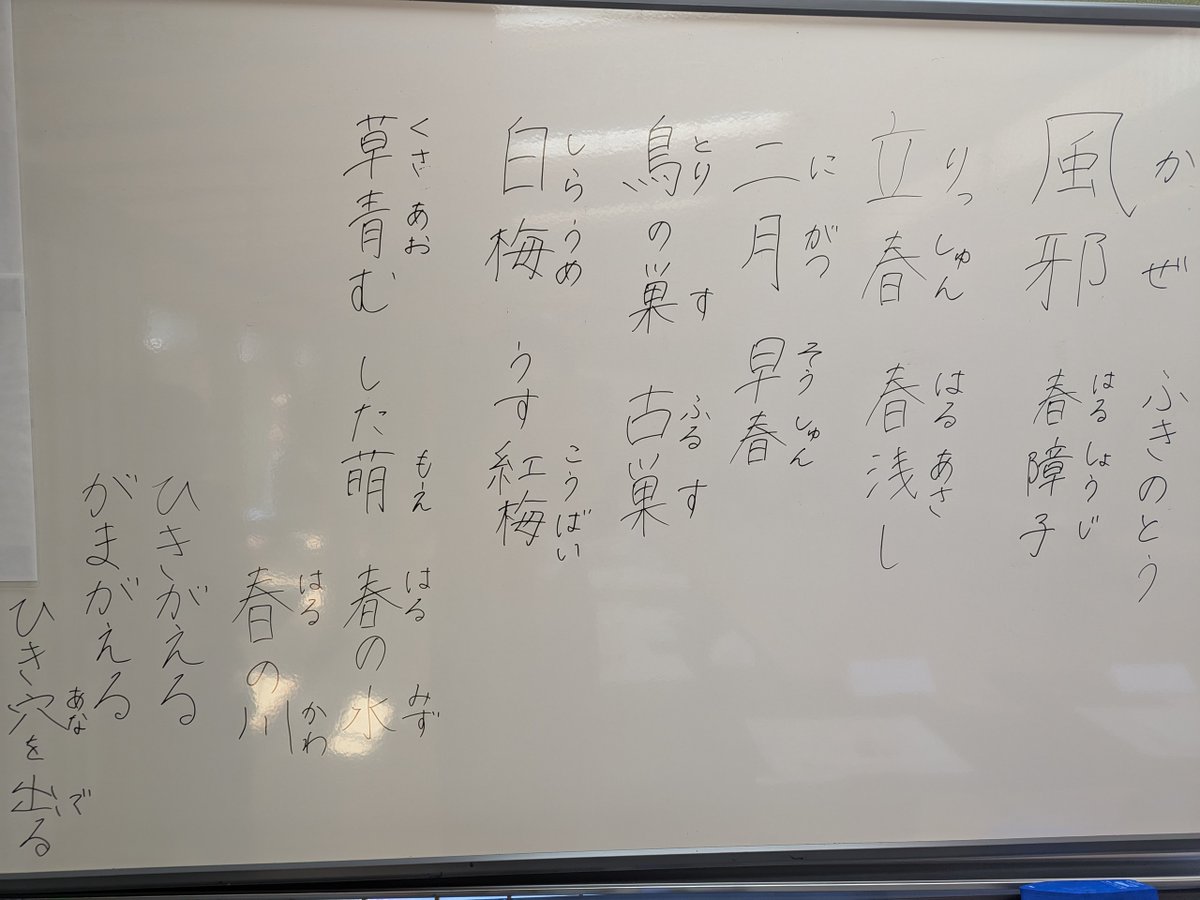 かぜ ふきのとう
風邪 春障子
はるしょうじ
りっしゅん はるあさ
立春 春浅し
にがつ そうしゅん
二月 早春
とり す ふるす
鳥の巣 古巣
しらうめ こうばい
白梅 うす紅梅
くさあお もえ はる みず
草青む した萌 春の水
はる かわ
春の川
ひきがえる
がまがえる
あな で
ひき穴を出る